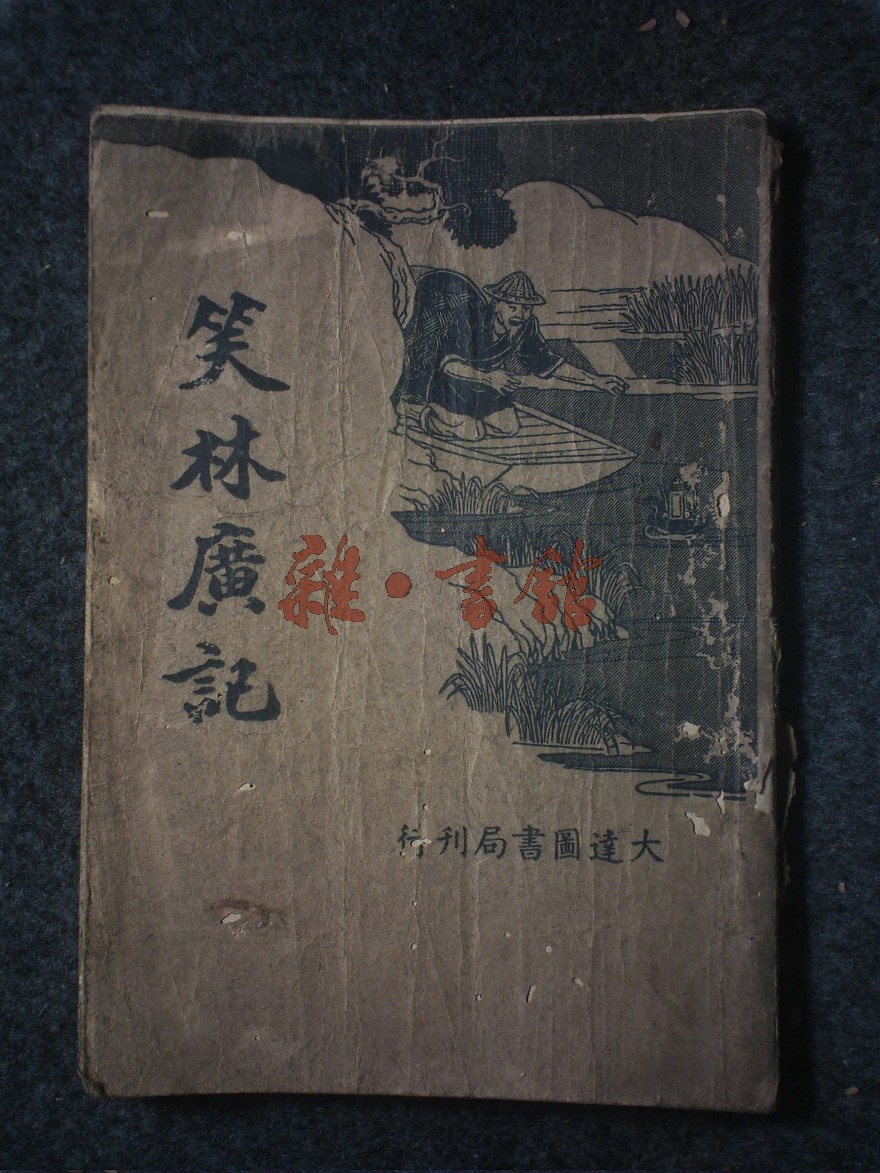 笑林廣記
雜·書館
大達圖書局刊行